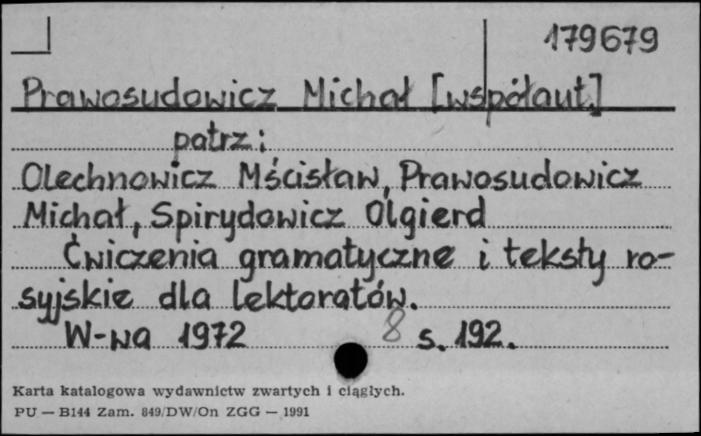 179679
Prawosudowicz Michał [współaut.]
patrz:
Olechnowicz Mścisław, Prawosudowicz
Michał, Spirydowicz Olgierd
Ćwiczenia gramatyczne i teksty ro-
syjskie dla lektoratów.
W-wa 1972 8 s. 192.
Karta katalogowa wydawnictw zwartych i ciągłych.
PU — B144 Zam. 849/DW/On ZGG — 1991